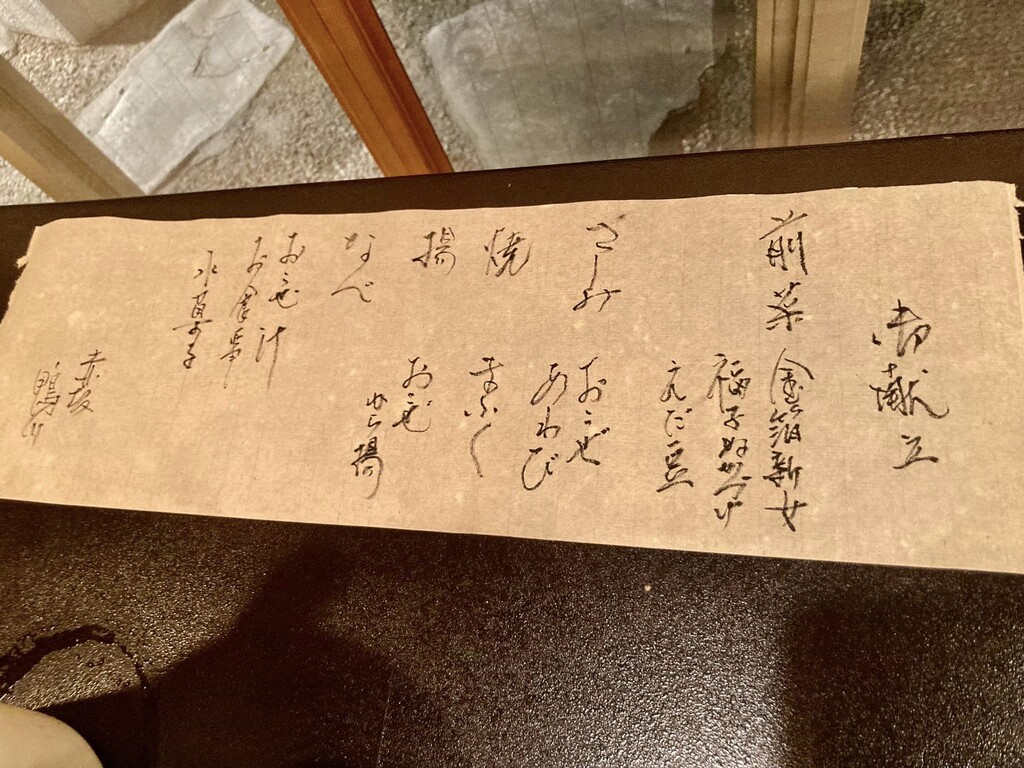 御献立
前菜 金箔新女
福子ぬか漬け
えだ豆
さしみ おこぜ
あわび
焼 まふぐ
揚 おこぜ
から揚
なべ
おこぜ汁
お食事
水菓子
赤坂
鴨川